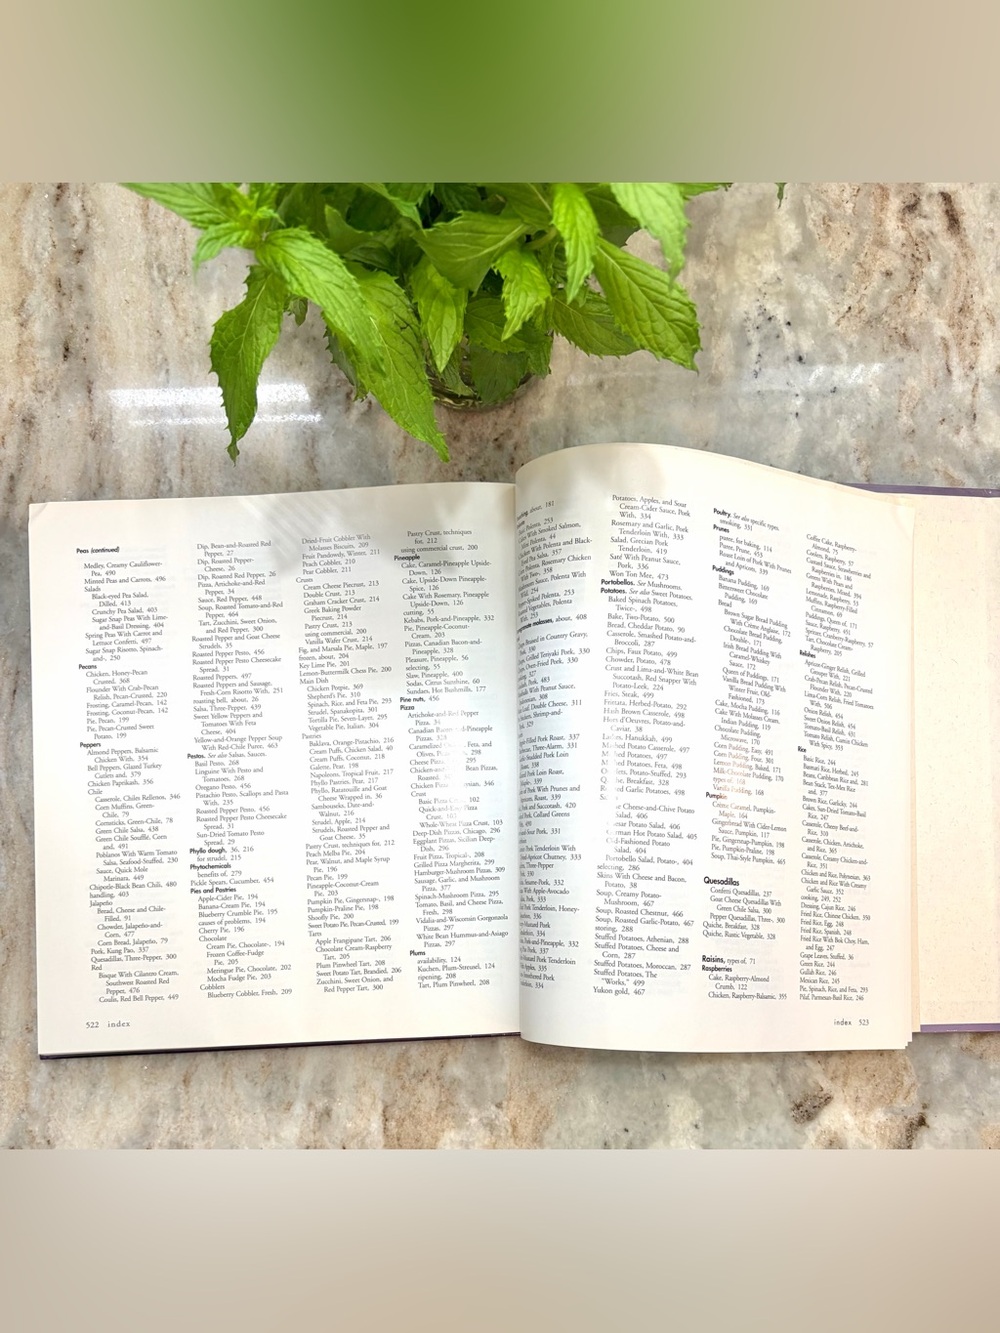 Peas (continued)
Medley, Creamy Cauliflower-
Pea, 490
Minted Peas and Carrots, 496
Salads
Black-eyed Pea Salad,
Dilled, 413
Crunchy Pea Salad, 403
Sugar Snap Peas With Lime-
and-Basil Dressing, 404
Spring Peas With Carrot and
Lettuce Confetti, 497
Sugar Snap Risotto, Spinach-
and-, 250
Pecans
Chicken, Honey-Pecan
Crusted, 368
Flounder With Crab-Pecan
Relish, Pecan-Crusted, 220
Frosting, Caramel-Pecan, 142
Frosting, Coconut-Pecan, 142
Pie, Pecan, 199
Pie Crust, Pecan-Coconut Sweet
Potato, 199
Peppers
Almond Peppers, Balsamic
Chicken With, 354
Bell Peppers, Glazed Turkey
Cutlets and, 379
Chicken Paprikash, 356
Chile
Casserole, Chiles Rellenos, 346
Corn Muffins, Green-
Chile, 79
Cornsticks, Green-Chile, 78
Green Chile Salsa, 438
Green Chile Soufflé, Corn
and, 491
Poblanos With Warm Tomato
Salsa, Seafood-Stuffed, 230
Sauce, Quick Mole
Marinara, 449
Chipotle-Black Bean Chili, 480
handling, 403
Jalapeño
Bread, Cheese and Chile-
Filled, 91
Chowder, Jalapeño-and-
Corn, 477
Corn Bread, Jalapeño, 79
Pork, Kung Pao, 337
Quesadillas, Three-Pepper, 300
Red
Bisque With Cilantro Cream,
Southwest Roasted Red
Pepper, 476
Coulis, Red Bell Pepper, 449
Dip, Bean-and-Roasted Red
Pepper, 27
Dip, Roasted Pepper-
Cheese, 26
Dip, Roasted Red Pepper, 26
Pizza, Artichoke-and-Red
Pepper, 34
Sauce, Red Pepper, 448
Soup, Roasted Tomato-and-Red
Pepper, 464
Tart, Zucchini, Sweet Onion,
and Red Pepper, 300
Roasted Pepper and Goat Cheese
Strudels, 35
Roasted Pepper Pesto, 456
Roasted Pepper Pesto Cheesecake
Spread, 31
Roasted Peppers, 497
Roasted Peppers and Sausage,
Fresh-Corn Risotto With, 251
roasting bell, about, 26
Salsa, Three-Pepper, 439
Sweet Yellow Peppers and
Tomatoes With Feta
Cheese, 404
Yellow-and-Orange Pepper Soup
With Red-Chile Puree, 463
Pestos. See also Salsas, Sauces.
Basil Pesto, 268
Linguine With Pesto and
Tomatoes, 268
Oregano Pesto, 456
Pistachio Pesto, Scallops and Pasta
With, 235
Roasted Pepper Pesto, 456
Roasted Pepper Pesto Cheesecake
Spread, 31
Sun-Dried Tomato Pesto
Spread, 29
Phyllo dough, 36, 216
for strudel, 215
Phytochemicals
benefits of, 279
Pickle Spears, Cucumber, 454
Pies and Pastries
Apple-Cider Pie, 194
Banana-Cream Pie, 194
Blueberry Crumble Pie, 195
causes of problems, 194
Cherry Pie, 196
Chocolate
Cream Pie, Chocolate-, 194
Frozen Coffee-Fudge
Pie, 205
Meringue Pie, Chocolate, 202
Mocha Fudge Pie, 203
Cobblers
Blueberry Cobbler, Fresh, 209
Dried-Fruit Cobbler With
Molasses Biscuits, 209
Fruit Pandowdy, Winter, 211
Peach Cobbler, 210
Pear Cobbler, 211
Crusts
Cream Cheese Piecrust, 213
Double Crust, 213
Graham Cracker Crust, 214
Greek Baking Powder
Piecrust, 214
Pastry Crust, 213
using commercial, 200
Vanilla Wafer Crust, 214
Fig, and Marsala Pie, Maple, 197
frozen, about, 204
Key Lime Pie, 201
Lemon-Buttermilk Chess Pie, 200
Main Dish
Chicken Potpie, 369
Shepherd's Pie, 310
Spinach, Rice, and Feta Pie, 293
Strudel, Spanakopita, 301
Tortilla Pie, Seven-Layer, 295
Vegetable Pie, Italian, 304
Pastries
Baklava, Orange-Pistachio, 216
Cream Puffs, Chicken Salad, 40
Cream Puffs, Coconut, 218
Galette, Pear, 198
Napoleons, Tropical Fruit, 217
Phyllo Pastries, Pear, 217
Phyllo, Ratatouille and Goat
Cheese Wrapped in, 36
Sambouseks, Date-and-
Walnut, 216
Strudel, Apple, 214
Strudels, Roasted Pepper and
Goat Cheese, 35
Pastry Crust, techniques for, 212
Peach Melba Pie, 204
Pear, Walnut, and Maple Syrup
Pie, 196
Pecan Pie, 199
Pineapple-Coconut-Cream
Pie, 203
Pumpkin Pie, Gingersnap-, 198
Pumpkin-Praline Pie, 198
Shoofly Pie, 200
Sweet Potato Pie, Pecan-Crusted, 199
Tarts
Apple Frangipane Tart, 206
Chocolate Cream-Raspberry
Tart, 205
Plum Pinwheel Tart, 208
Sweet Potato Tart, Brandied, 206
Zucchini, Sweet Onion, and
Red Pepper Tart, 300
Pastry Crust, techniques
for, 212
using commercial crust, 200
Pineapple
Cake, Caramel-Pineapple Upside-
Down, 126
Cake, Upside-Down Pineapple-
Spice, 126
Cake With Rosemary, Pineapple
Upside-Down, 126
cutting, 55
Kebabs, Pork-and-Pineapple, 332
Pie, Pineapple-Coconut-
Cream, 203
Pizzas, Canadian Bacon-and-
Pineapple, 328
Pleasure, Pineapple, 56
selecting, 55
Slaw, Pineapple, 400
Sodas, Citrus Sunshine, 60
Sundaes, Hot Bushmills, 177
Pine nuts, 456
Pizza
Artichoke-and-Red Pepper
Pizza, 34
Canadian
Pizzas, 328
Caramelized Feta, and
Olives, 298
Cheese Pizza, 295
Bean Pizzas,
Roasted,
Chicken Pizza 346
Crust
Basic Pizza 102
Quick-and-
Crust,
Whole-Wheat Pizza Crust, 103
Deep-Dish Pizzas, Chicago, 296
Eggplant Pizzas, Sicilian Deep-
Dish, 296
Fruit Pizza, Tropical-, 208
Grilled Pizza Margherita, 299
Hamburger-Mushroom Pizzas, 309
Sausage, Garlic, and Mushroom
Pizza, 377
Spinach-Mushroom Pizza, 295
Tomato, Basil, and Cheese Pizza,
Fresh, 298
Vidalia-and-Wisconsin Gorgonzola
Pizza, 297
White Bean Hummus-and-Asiago
Pizzas, 297
Plums
availability, 124
Kuchen, Plum-Streusel, 124
ripening, 208
Tart, Plum Pinwheel, 208
522 index
about, 181
Polenta, 253
With Smoked Salmon,
Polenta, 44
With Polenta and Black-
Pea Salsa, 357
Polenta, Rosemary Chicken
With Two-, 358
Sauce, Polenta With
254
Polenta, 253
Vegetables, Polenta
253
molasses, about, 408
Braised in Country Gravy,
330
Grilled Teriyaki Pork, 330
Oven-Fried Pork, 330
327
Pork, 483
With Peanut Sauce,
308
Double Cheese, 311
Shrimp-and-
329
Filled Roast Pork, 337
Three-Alarm, 331
Stuffed Pork Loin
338
Pork Loin Roast,
339
of Pork With Prunes and
Roast, 339
and Succotash, 420
Pork, Collard Greens
498
Pork, 331
Pork Tenderloin With
Apricot Chutney, 333
Three-Pepper
330
Sesame-Pork, 332
With Apple-Avocado
Pork, 333
Pork Tenderloin, Honey-
336
Pork-and-Pineapple, 332
Pork, 337
Mustard Pork Tenderloin
Apples, 335
Pork
334
Potatoes, Apples, and Sour
Cream-Cider Sauce, Pork
With, 334
Rosemary and Garlic, Pork
Tenderloin With, 333
Salad, Grecian Pork
Tenderloin, 419
Saté With Peanut Sauce,
Pork, 336
Won Ton Mee, 473
Portobellos. See Mushrooms.
Potatoes. See also Sweet Potatoes.
Baked Spinach Potatoes,
Twice-, 498
Bake, Two-Potato, 500
Bread, Cheddar Potato, 90
Casserole, Smashed Potato-and-
Broccoli, 287
Chips, Faux Potato, 499
Chowder, Potato, 478
Crust and Lima-and-White Bean
Succotash, Red Snapper With
Potato-Leek, 224
Fries, Steak, 499
Frittata, Herbed-Potato, 292
Hash Brown Casserole, 498
Hors d'Oeuvres, Potato-and-
Caviar, 38
Latkes, Hanukkah, 499
Mashed Potato Casserole, 497
Mashed Potatoes, 497
Mashed Potatoes, Feta, 498
Omelets, Potato-Stuffed, 293
Quiche, Breakfast, 328
Roasted Garlic Potatoes, 498
Cheese-and-Chive Potato
Salad, 406
Caesar Potato Salad, 406
German Hot Potato Salad, 405
Old-Fashioned Potato
Salad, 404
Portobello Salad, Potato-, 404
selecting, 286
Skins With Cheese and Bacon,
Potato, 38
Soup, Creamy Potato-
Mushroom, 467
Soup, Roasted Chestnut, 466
Soup, Roasted Garlic-Potato, 467
storing, 288
Stuffed Potatoes, Athenian, 288
Stuffed Potatoes, Cheese and
Corn, 287
Stuffed Potatoes, Moroccan, 287
Stuffed Potatoes, The
"Works," 499
Yukon gold, 467
Poultry. See also specific types.
smoking, 351
Prunes
puree, for baking, 114
Puree, Prune, 453
Roast Loin of Pork With Prunes
and Apricots, 339
Puddings
Banana Pudding, 169
Bittersweet Chocolate
Pudding, 169
Bread
Brown Sugar Bread Pudding
With Crème Anglaise, 172
Chocolate Bread Pudding,
Double, 171
Irish Bread Pudding With
Caramel-Whiskey
Sauce, 172
Queen of Puddings, 171
Vanilla Bread Pudding With
Winter Fruit, Old-
Fashioned, 173
Cake, Mocha Pudding, 116
Cake With Molasses Cream,
Indian Pudding, 119
Chocolate Pudding,
Microwave, 170
Corn Pudding, Easy, 491
Corn Pudding, Four, 301
Lemon Pudding, Baked, 171
Milk-Chocolate Pudding, 170
types of, 168
Vanilla Pudding, 168
Pumpkin
Crème Caramel, Pumpkin-
Maple, 164
Gingerbread With Cider-Lemon
Sauce, Pumpkin, 117
Pie, Gingersnap-Pumpkin, 198
Pie, Pumpkin-Praline, 198
Soup, Thai-Style Pumpkin, 465
Quesadillas
Confetti Quesadillas, 237
Goat Cheese Quesadillas With
Green Chile Salsa, 300
Pepper Quesadillas, Three-, 300
Quiche, Breakfast, 328
Quiche, Rustic Vegetable, 328
Raisins, types of, 71
Raspberries
Cake, Raspberry-Almond
Crumb, 122
Chicken, Raspberry-Balsamic, 355
Coffee Cake, Raspberry-
Almond, 75
Cookies, Raspberry, 57
Custard Sauce, Strawberries and
Raspberries in, 186
Greens With Pears and
Raspberries, Mixed, 394
Lemonade, Raspberry, 53
Muffins, Raspberry-Filled
Cinnamon, 69
Puddings, Queen of, 171
Sauce, Raspberry, 451
Spritzer, Cranberry-Raspberry, 57
Tart, Chocolate Cream-
Raspberry, 205
Relishes
Apricot-Ginger Relish, Grilled
Grouper With, 221
Crab-Pecan Relish, Pecan-Crusted
Flounder With, 220
Lima-Corn Relish, Fried Tomatoes
With, 506
Onion Relish, 454
Sweet Onion Relish, 454
Tomato-Basil Relish, 431
Tomato Relish, Cumin Chicken
With Spicy, 351
Rice
Basic Rice, 244
Basmati Rice, Herbed, 245
Beans, Caribbean Rice and, 281
Beef Stock, Ten-Mex Rice
and, 377
Brown Rice, Garlicky, 244
Cakes, Sun-Dried Tomato-Basil
Rice, 247
Casserole, Cheesy Beef-and-
Rice, 310
Casserole, Chicken, Artichoke,
and Rice, 365
Casserole, Creamy Chicken-and-
Rice, 351
Chicken and Rice, Polynesian, 363
Chicken and Rice With Creamy
Garlic Sauce, 352
cooking, 249, 252
Dressing, Cajun Rice, 246
Fried Rice, Chinese Chicken, 350
Fried Rice, Egg, 248
Fried Rice, Spanish, 248
Fried Rice With Bok Choy, Ham,
and Egg, 247
Grape Leaves, Stuffed, 36
Green Rice, 244
Gullah Rice, 246
Mexican Rice, 245
Pie, Spinach, Rice, and Feta, 293
Pilaf, Parmesan-Basil Rice, 246
index 523